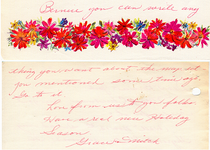 Because you can write any
thing you want about the way set
you mentioned some time ago.
Go to it.
Love from us to you folks
Have a real nice Holiday
Season